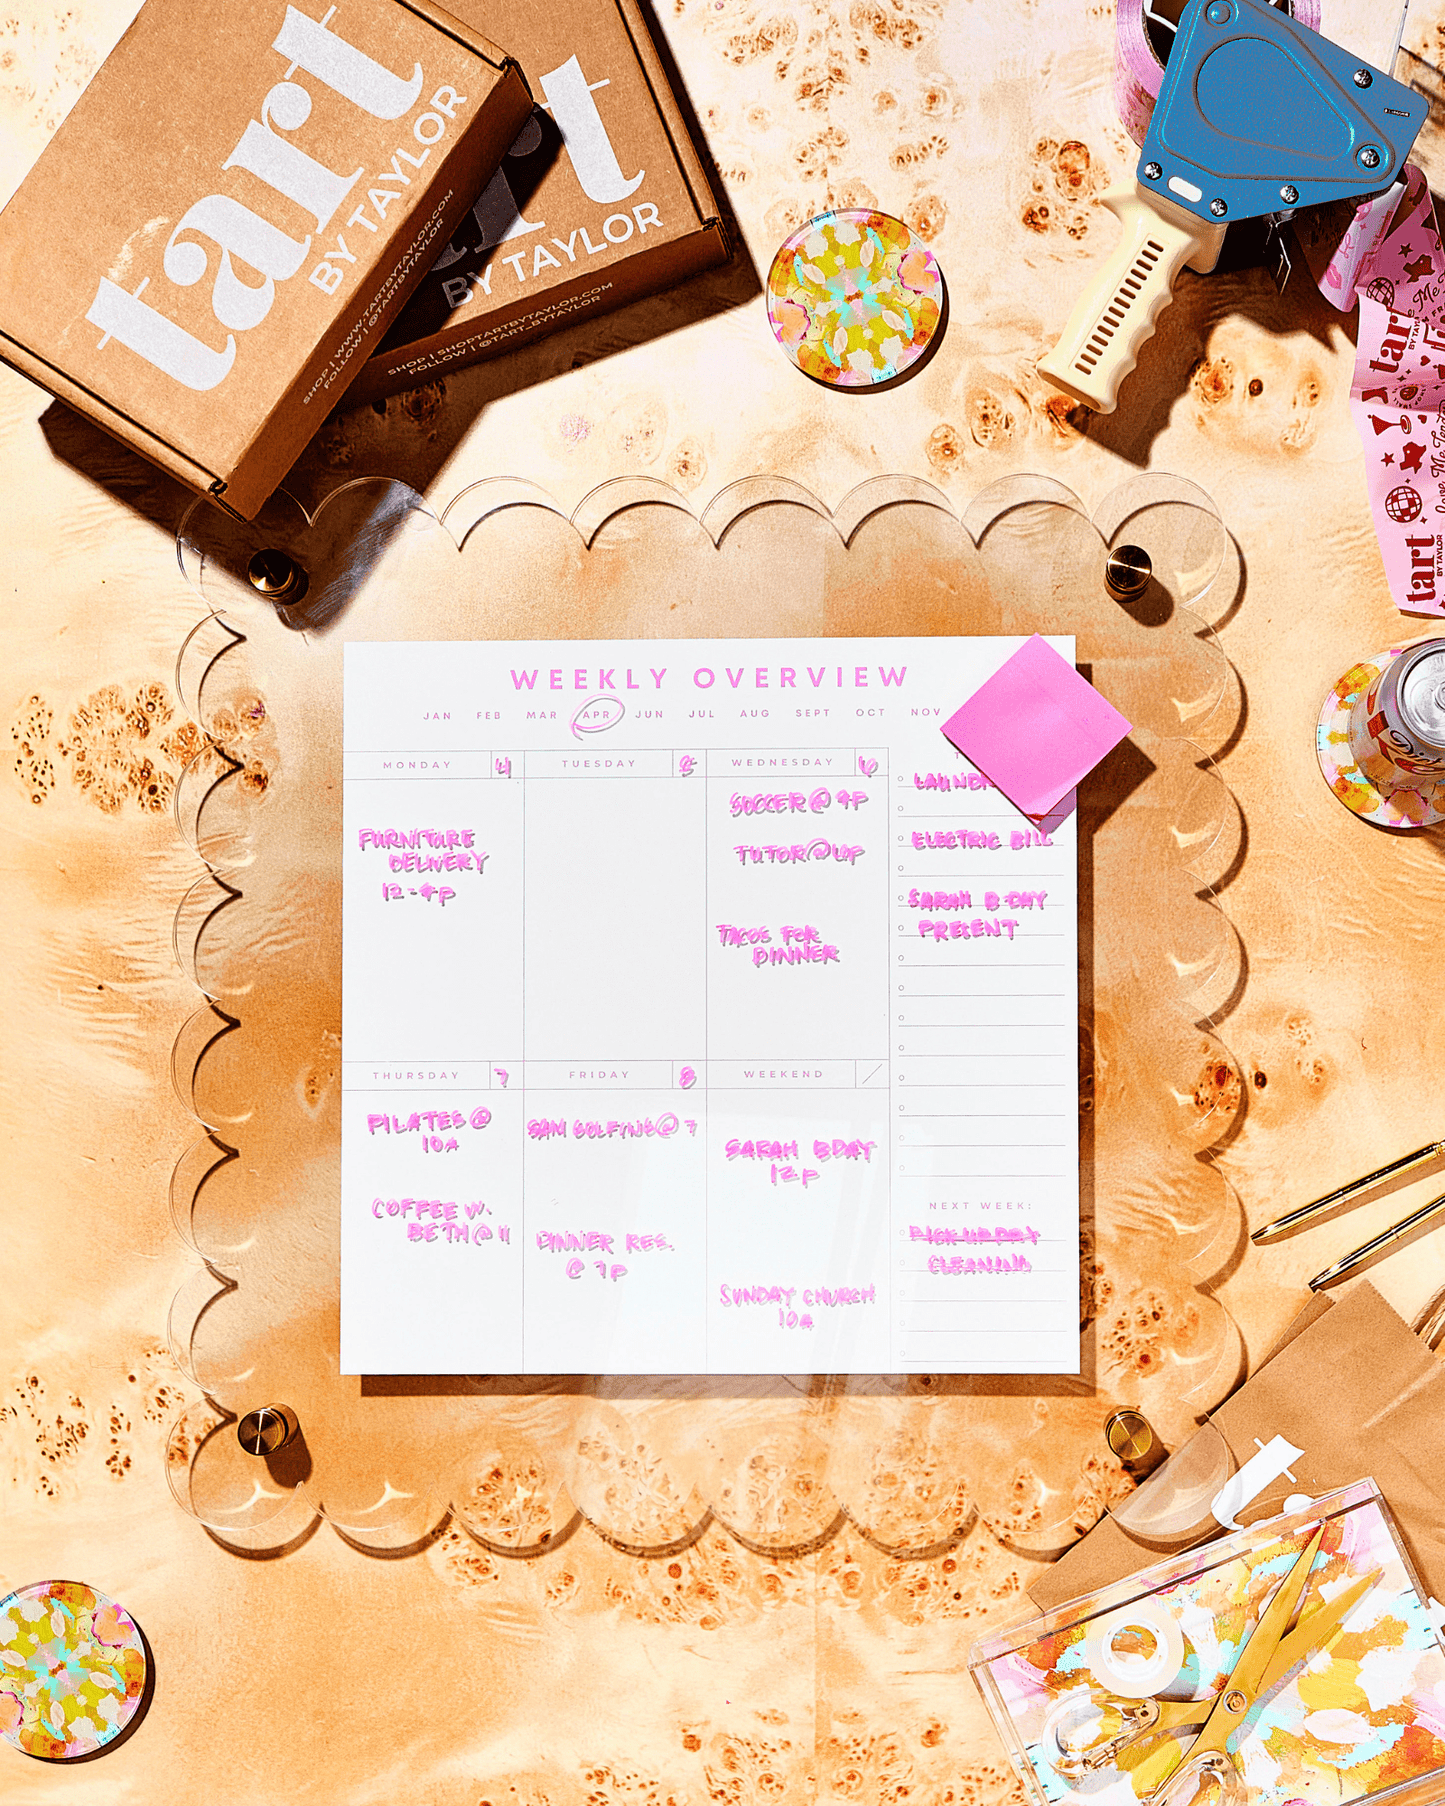 tart
BY TAYLOR
SHOP | WWW.TARTBYTAYLOR.COM
FOLLOW | @TARTBYTAYLOR
art
BY TAYLOR
SHOP | SHOPTARTBYTAYLOR.COM
FOLLOW | @TART_BYTAYLOR
tart
BY TAYLOR
Love Me Tender
tart
BY TAYLOR
WEEKLY OVERVIEW
JAN FEB MAR APR JUN JUL AUG SEPT OCT NOV
MONDAY 4
FURNITURE
DELIVERY
12-4P
TUESDAY 5
WEDNESDAY 6
SOCCER @ 4P
TUTOR @ 6P
TACOS FOR
DINNER
THURSDAY 7
PILATES @
10A
COFFEE W.
BETH @ 11
FRIDAY 8
SAM GOLFING @ 7
DINNER RES.
@ 7P
WEEKEND /
SARAH BDAY
12P
SUNDAY CHURCH
10A
LAUND
ELECTRIC BILL
SARAH B-DAY
PRESENT
NEXT WEEK:
PICK UP DRY
CLEANING
Diet
t